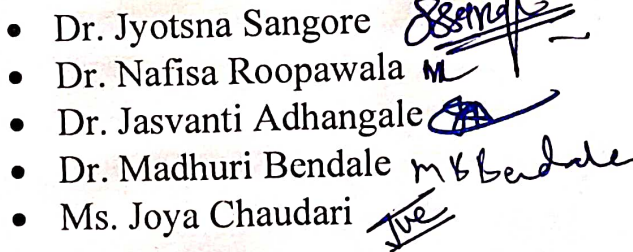 • Dr. Jyotsna Sangore
• Dr. Nafisa Roopawala
• Dr. Jasvanti Adhangale
• Dr. Madhuri Bendale MKBendale
• Ms. Joya Chaudari